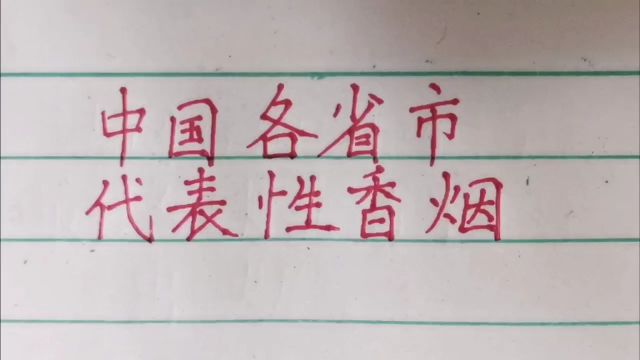 中国各省市
代表性香烟